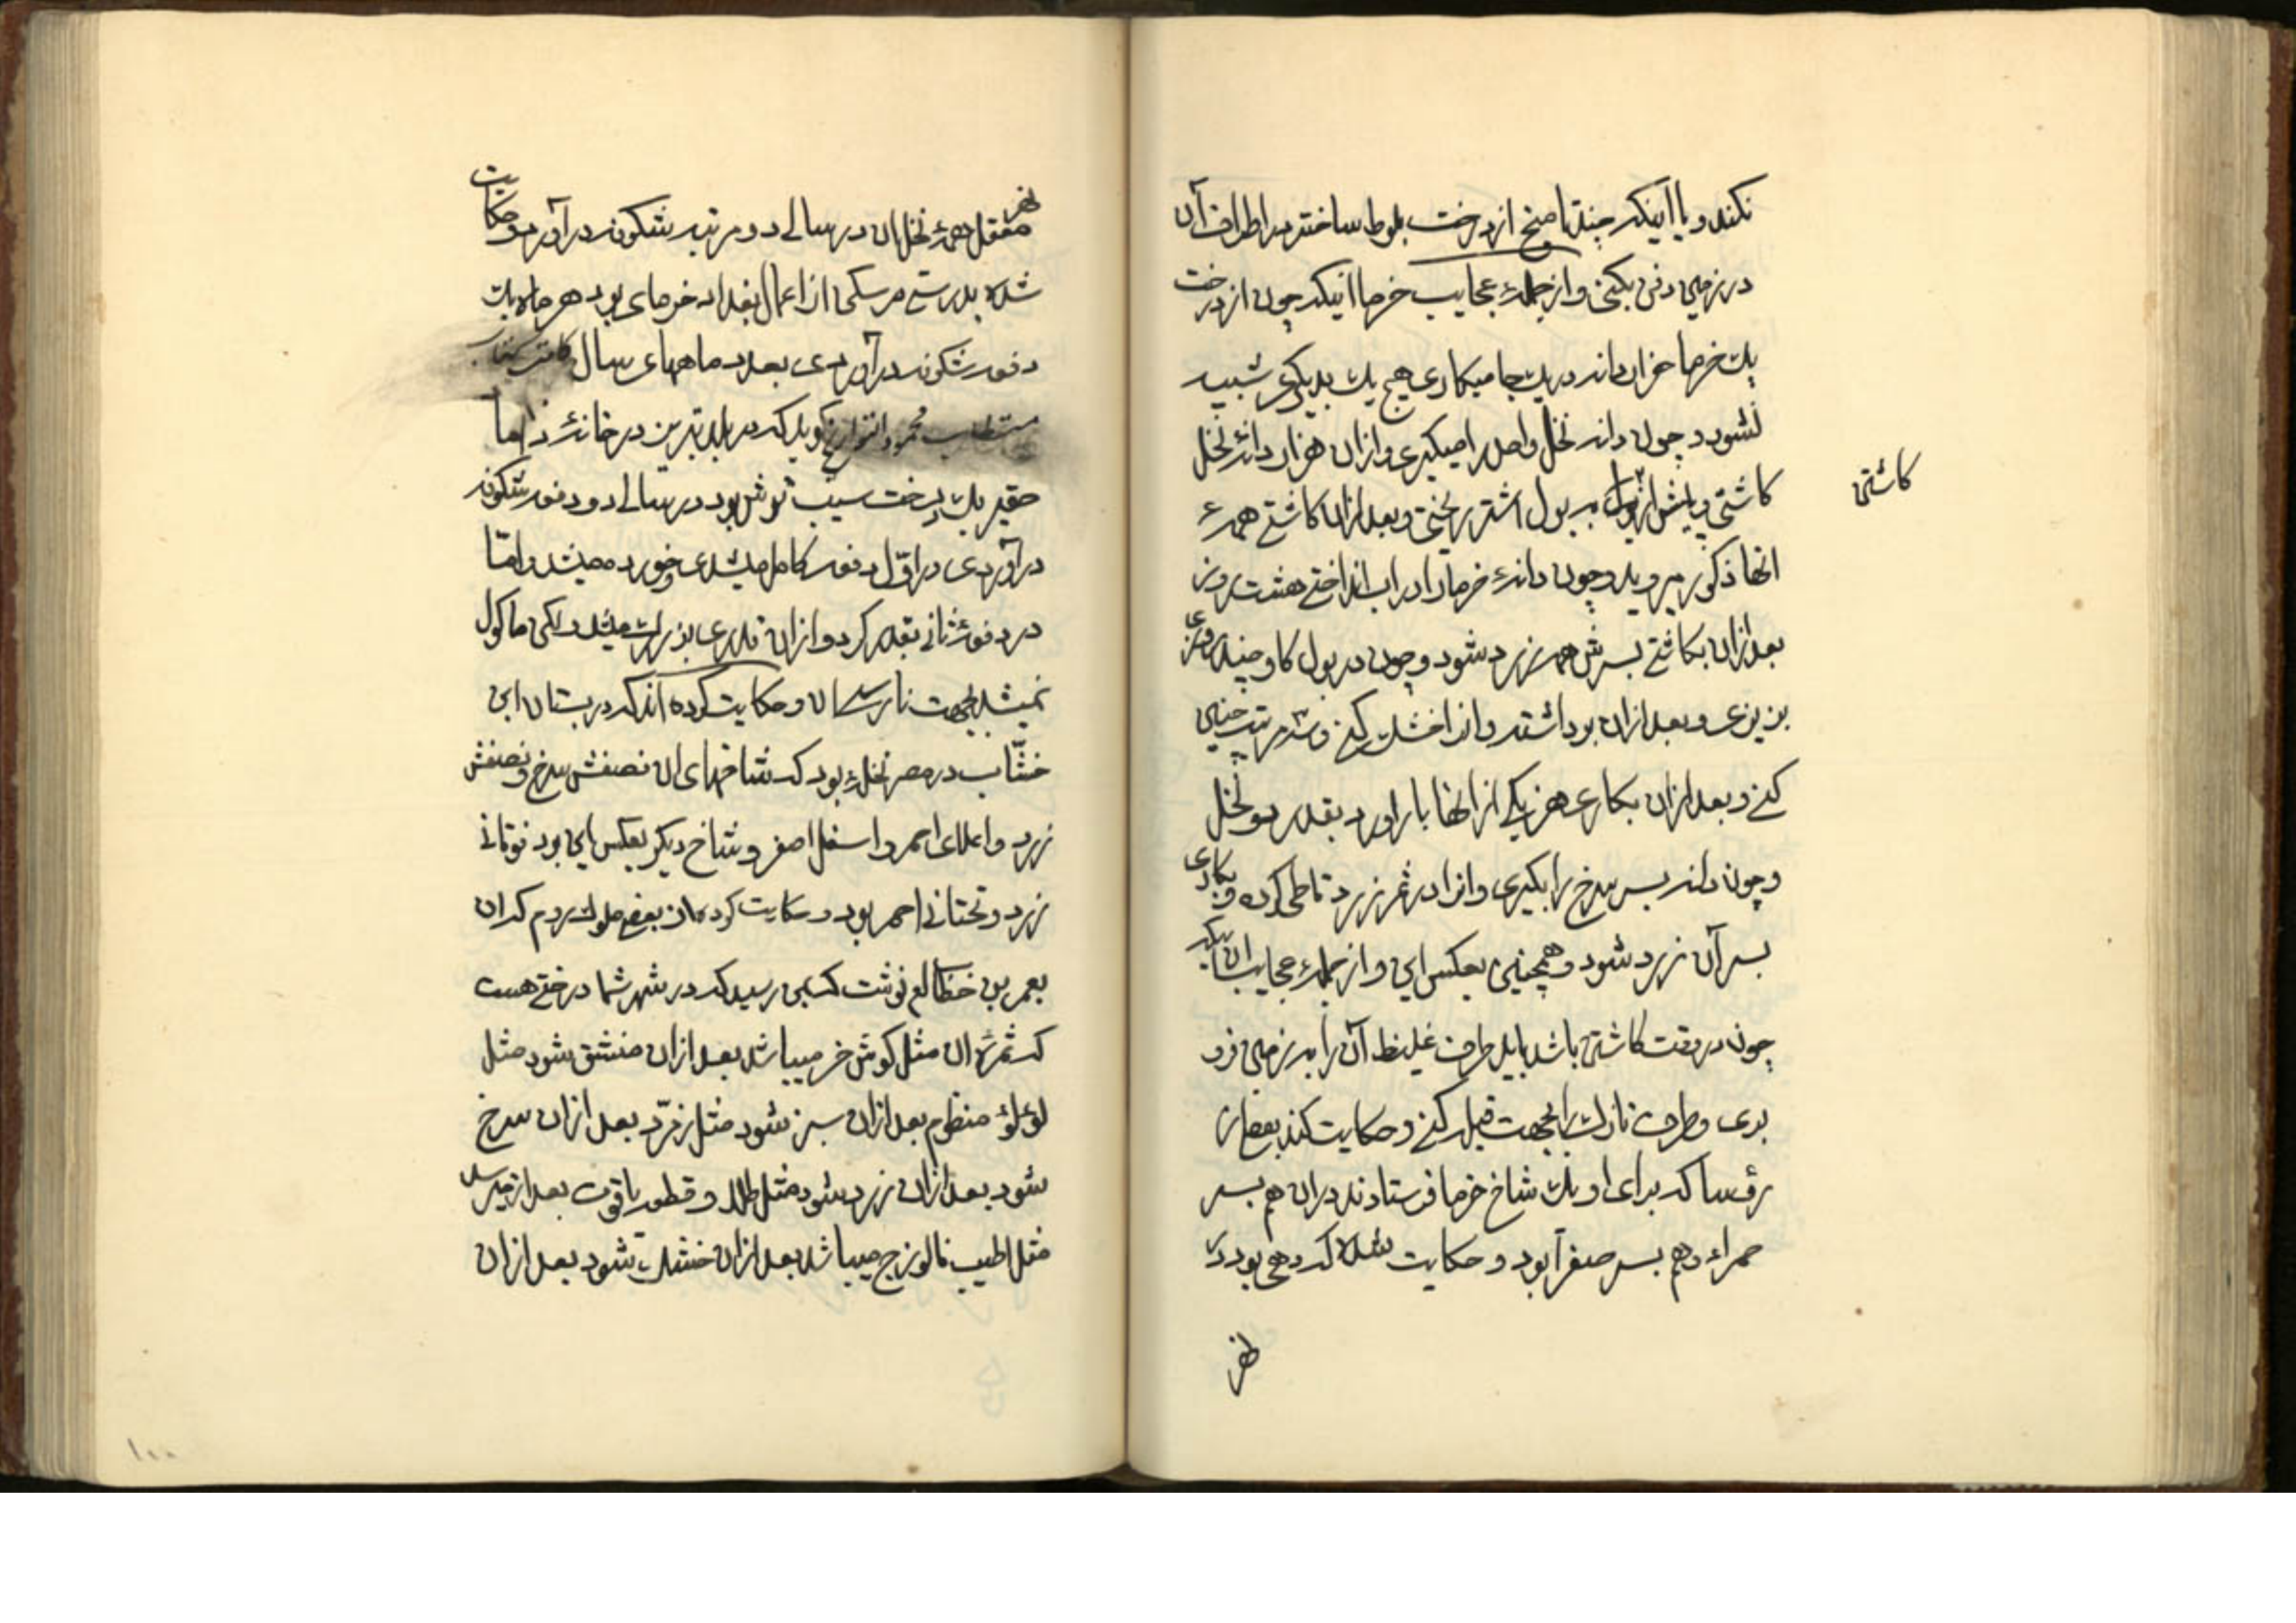 نکند و یا اینکه چند تا میخ از درخت بلوط ساخته در اطراف آن
در زمین دفن بکنی و از جملهٔ عجایب خرما اینکه چون از درخت
یک خرما هزار دانه در یک جا میکاری هیچ یک بدیگری شبیه
نشود و چون دانه نخل واحد را میگیری و از آن هزار دانهٔ نخل
کاشتی و پیش از به بول اشتر ریختی و بعد از آن کاشتی همهٔ
کاشتن
انها ذکور میروید و چون دانهٔ خرما را در اب انداختی هشت روز
بعد از آن بکاشتی بسرش همه زرد شود و چون در بول کاو چند روزی
بریزی و بعد از آن برداشته وانرا خشک کنی و سه مرتبه چنین
کنی و بعد از آن بکاری هر یکی از انها بار اورد بقدر دو نخل
و چون دانه بسر سرخ را بگیری وانرا در ثمر زرد کرده و بکاری
بسر آن زرد شود و همچنین بعکس این و از جملهٔ عجایب آن اینکه
چون در وقت کاشتن باشد باید طرف غلیظ آن را به زمین فرو
بری و طرف نازک را بجهت قبله کنی و حکایت کنند بعض از
رؤسا که برای او یک شاخ خرما فرستادند در ان هم بسر
حمراء و هم بسر صفرآ بود و حکایت شده که دهی بود در
نهر
نهر
معقل همهٔ نخل ان در سالی دو مرتبه شکوفه در آورد و حکایت
شده بدرستی در سکن از اعمال بغداد خرمای بود هر ماه یک
دفعه شکوفه در آوردی بعدد ماههای سال
گوید که در بلد تبریز در خانهٔ اما
حقیر یک درخت سیب ترش بود در سالی دو دفعه شکوفه
در آوردی در اوّل دفعه کامل میشدی و خورده میشد و امّا
در دفعهٔ ثانی بقدر کردو از ان قدری بزرک میشد ولکن ماکول
نمیشد بجهت نارسان و حکایت کرده اند که در بستان ابن
خشّاب در مصر نخلهٔ بود که شاخهای ان نصفش سرخ و نصفش
زرد و اعلای احمر و اسفل اصفر و شاخ دیکر بعکس این بود فوقانی
زرد و تحتانی احمر بود و حکایت کرده از بعض ملوک روم که ان
بعمر بن خطاب نوشت که بمن رسید که در شهر شما درختی هست
که ثمرهٔ ان مثل کوش خر میباشد بعد از ان منشق شود مثل
لؤلؤ منظوم بعد از ان سبز شود مثل زمرّد بعد از ان سرخ
شود بعد از ان زرد شود مثل طلا و قطعهٔ یاقوت بعد از ان میرسد
مثل اطیب فالوزج میباشد بعد از ان خشک شود بعد از ان
۱۰۰